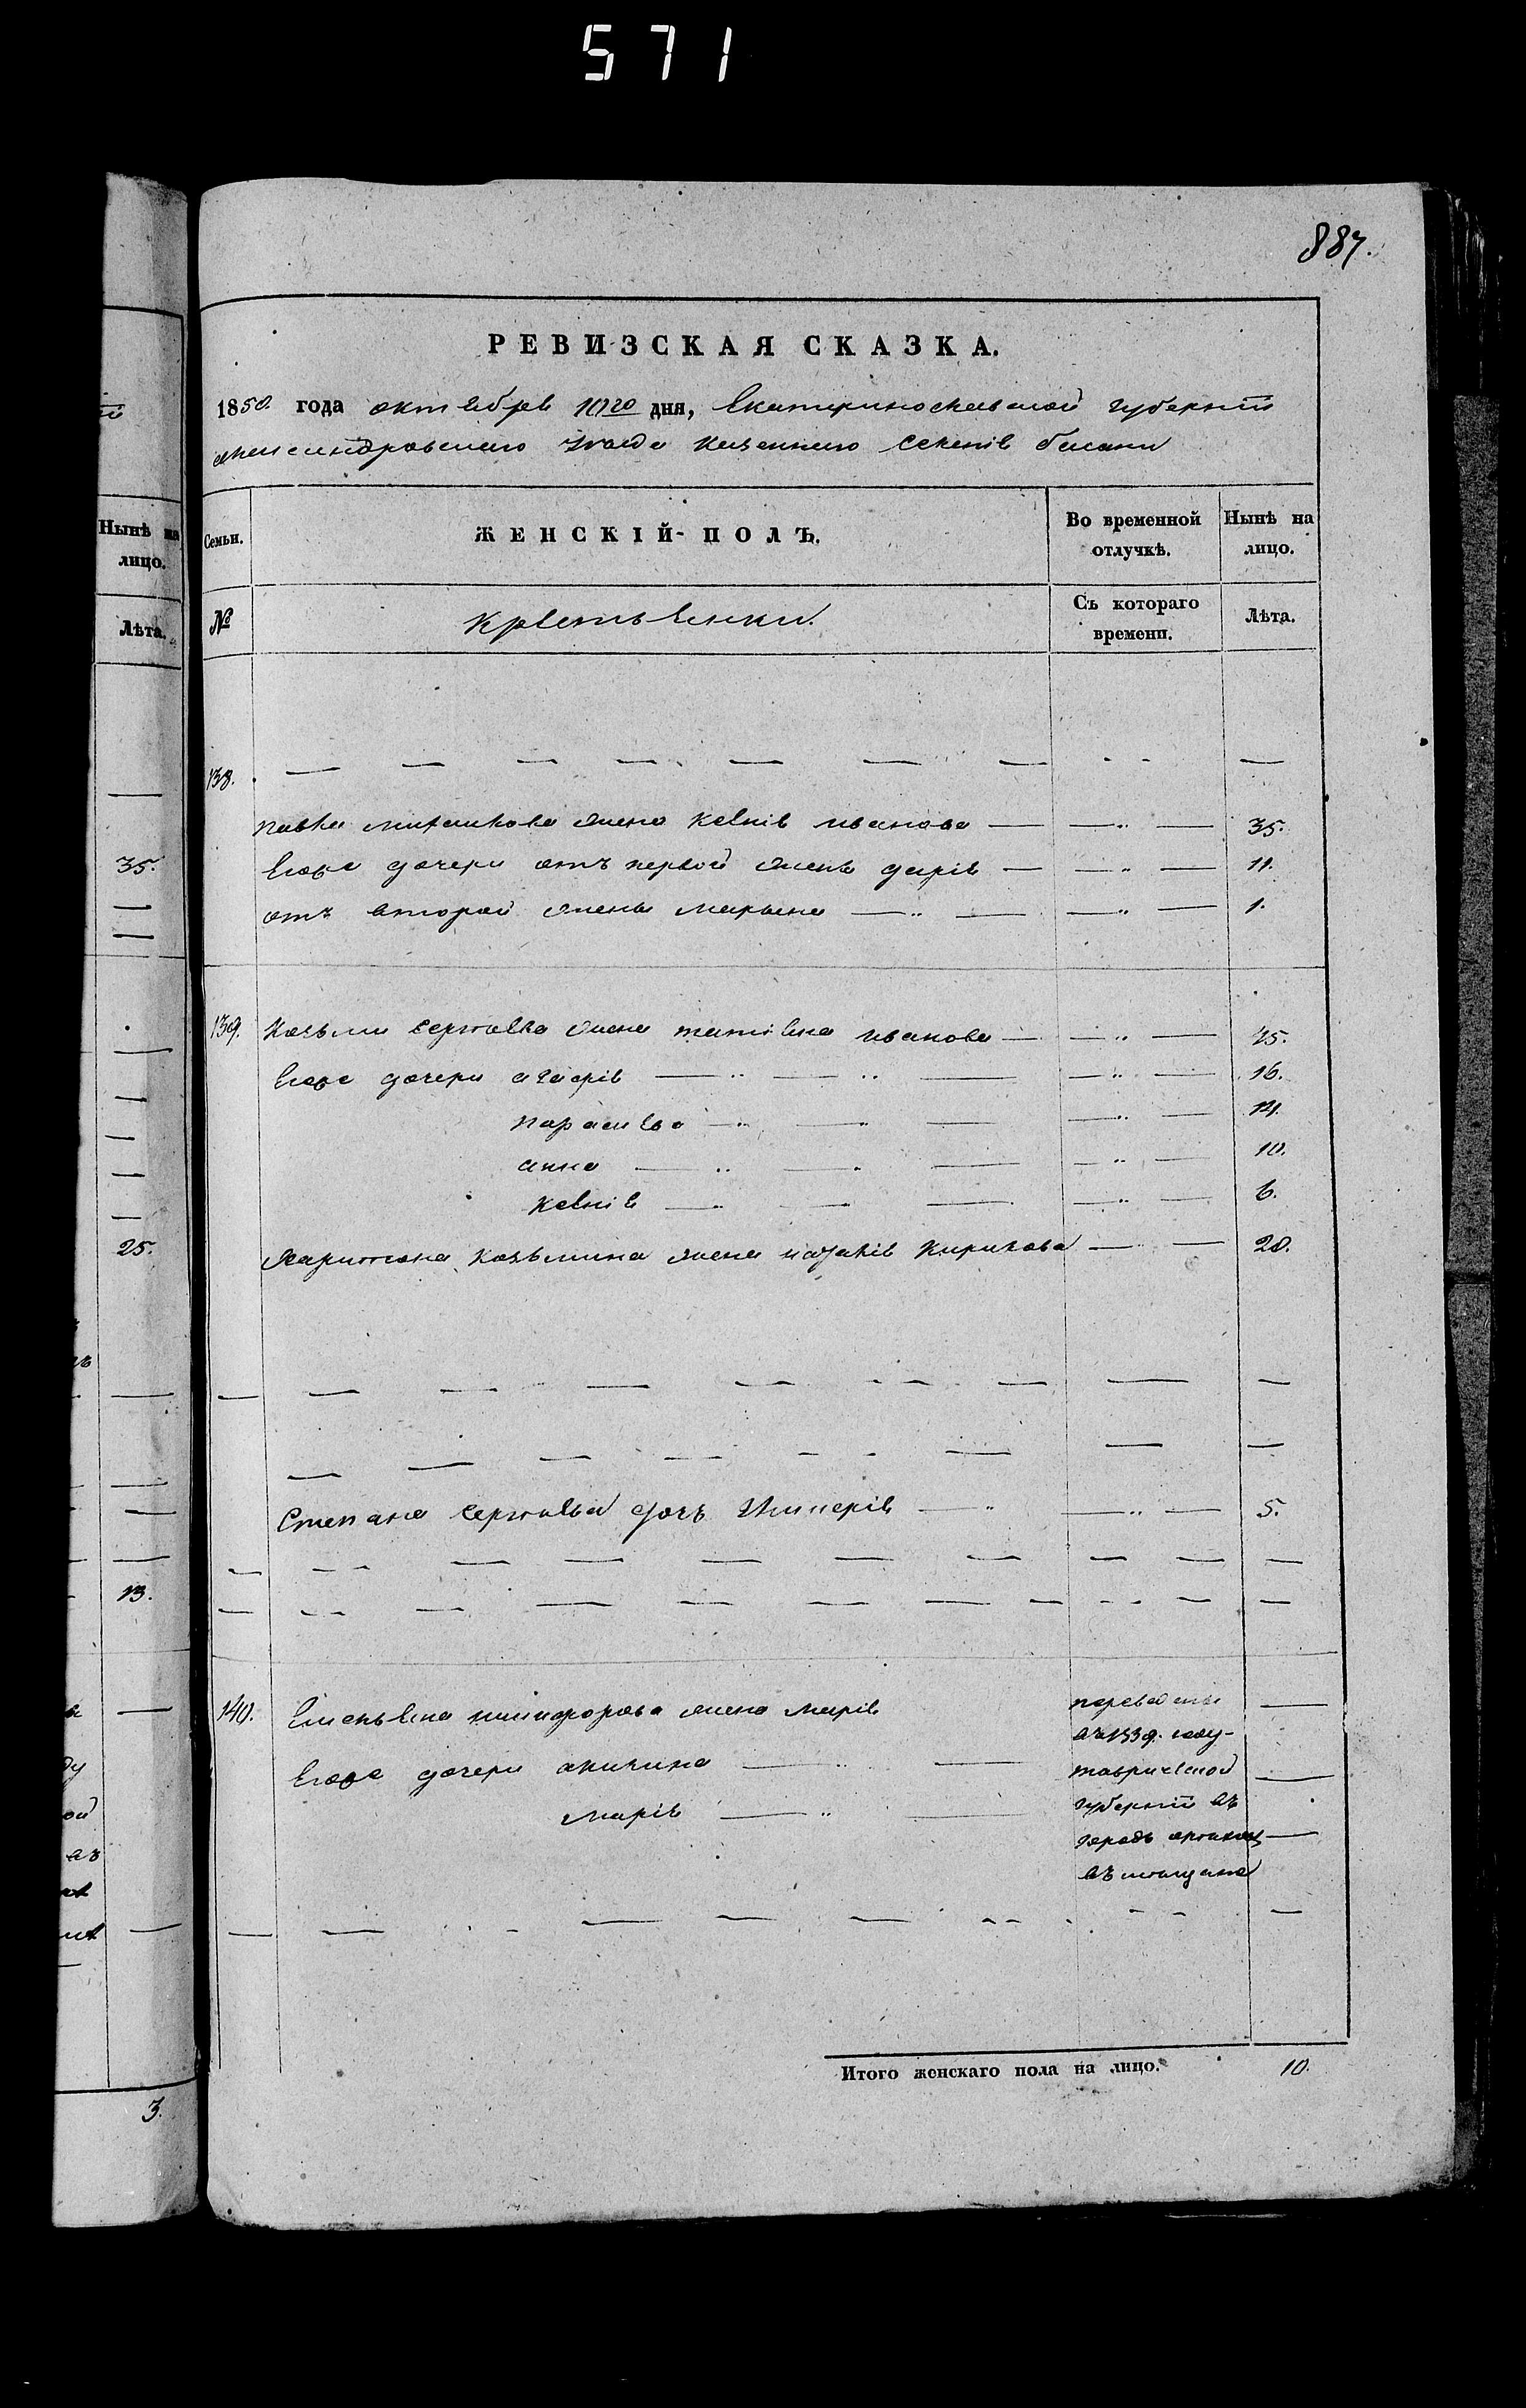 571
887.
РЕВИЗСКАЯ СКАЗКА.
1850. года октября 10го дня, Екатеринославской губернiи
александровскаго уезда казеннаго селенiя белани
Нынѣ на лицо.
Лѣта.
35.
25.
13.
3.
Семьи.
ЖЕНСКIЙ ПОЛЪ.
Во временной отлучкѣ.
Нынѣ на лицо.
№
крестьянки.
Съ котораго времени.
Лѣта.
138.
павла михаилова жена ксенiя иванова — — „ — 35.
Его дочери отъ первой жены дарiя — — „ — 11.
отъ второй жены марьяна — „ — — „ — 1.
139. Козьми сергѣева жена татiяна иванова — — „ — 45.
Его дочери агафiя — „ — „ — — „ — 16.
параскева — „ — „ — — „ — 14.
анна — „ — „ — — „ — 10.
ксенiя — „ — „ — — „ — 6.
Харитона козьмина жена наталiя кирилова — — 20.
Степана сергѣева дочь гликерiя — „ — „ — 5.
140. Емельяна никифорова жена марiя
переведены
въ 1839. году
Его дочери акилина — „ —
таврической
марiя — „ —
губернiи въ
городъ
въ мещане
Итого женскаго пола на лицо. 10.